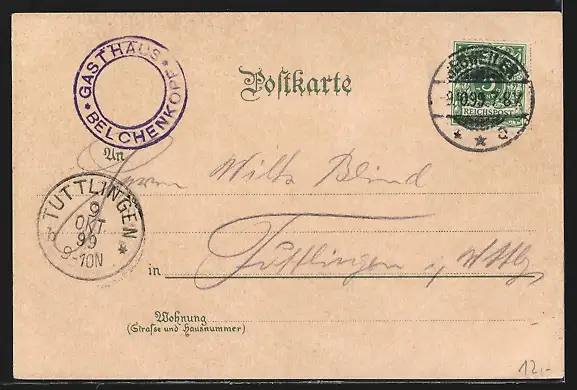 GASTHAUS BELCHENKOPF
Postkarte
REICHSPOST
An
Herrn Wilh Blind
TUTTLINGEN
9
OKT.
99
9-10N
in Tuttlingen
Wohnung
(Straße und Hausnummer)
12.-